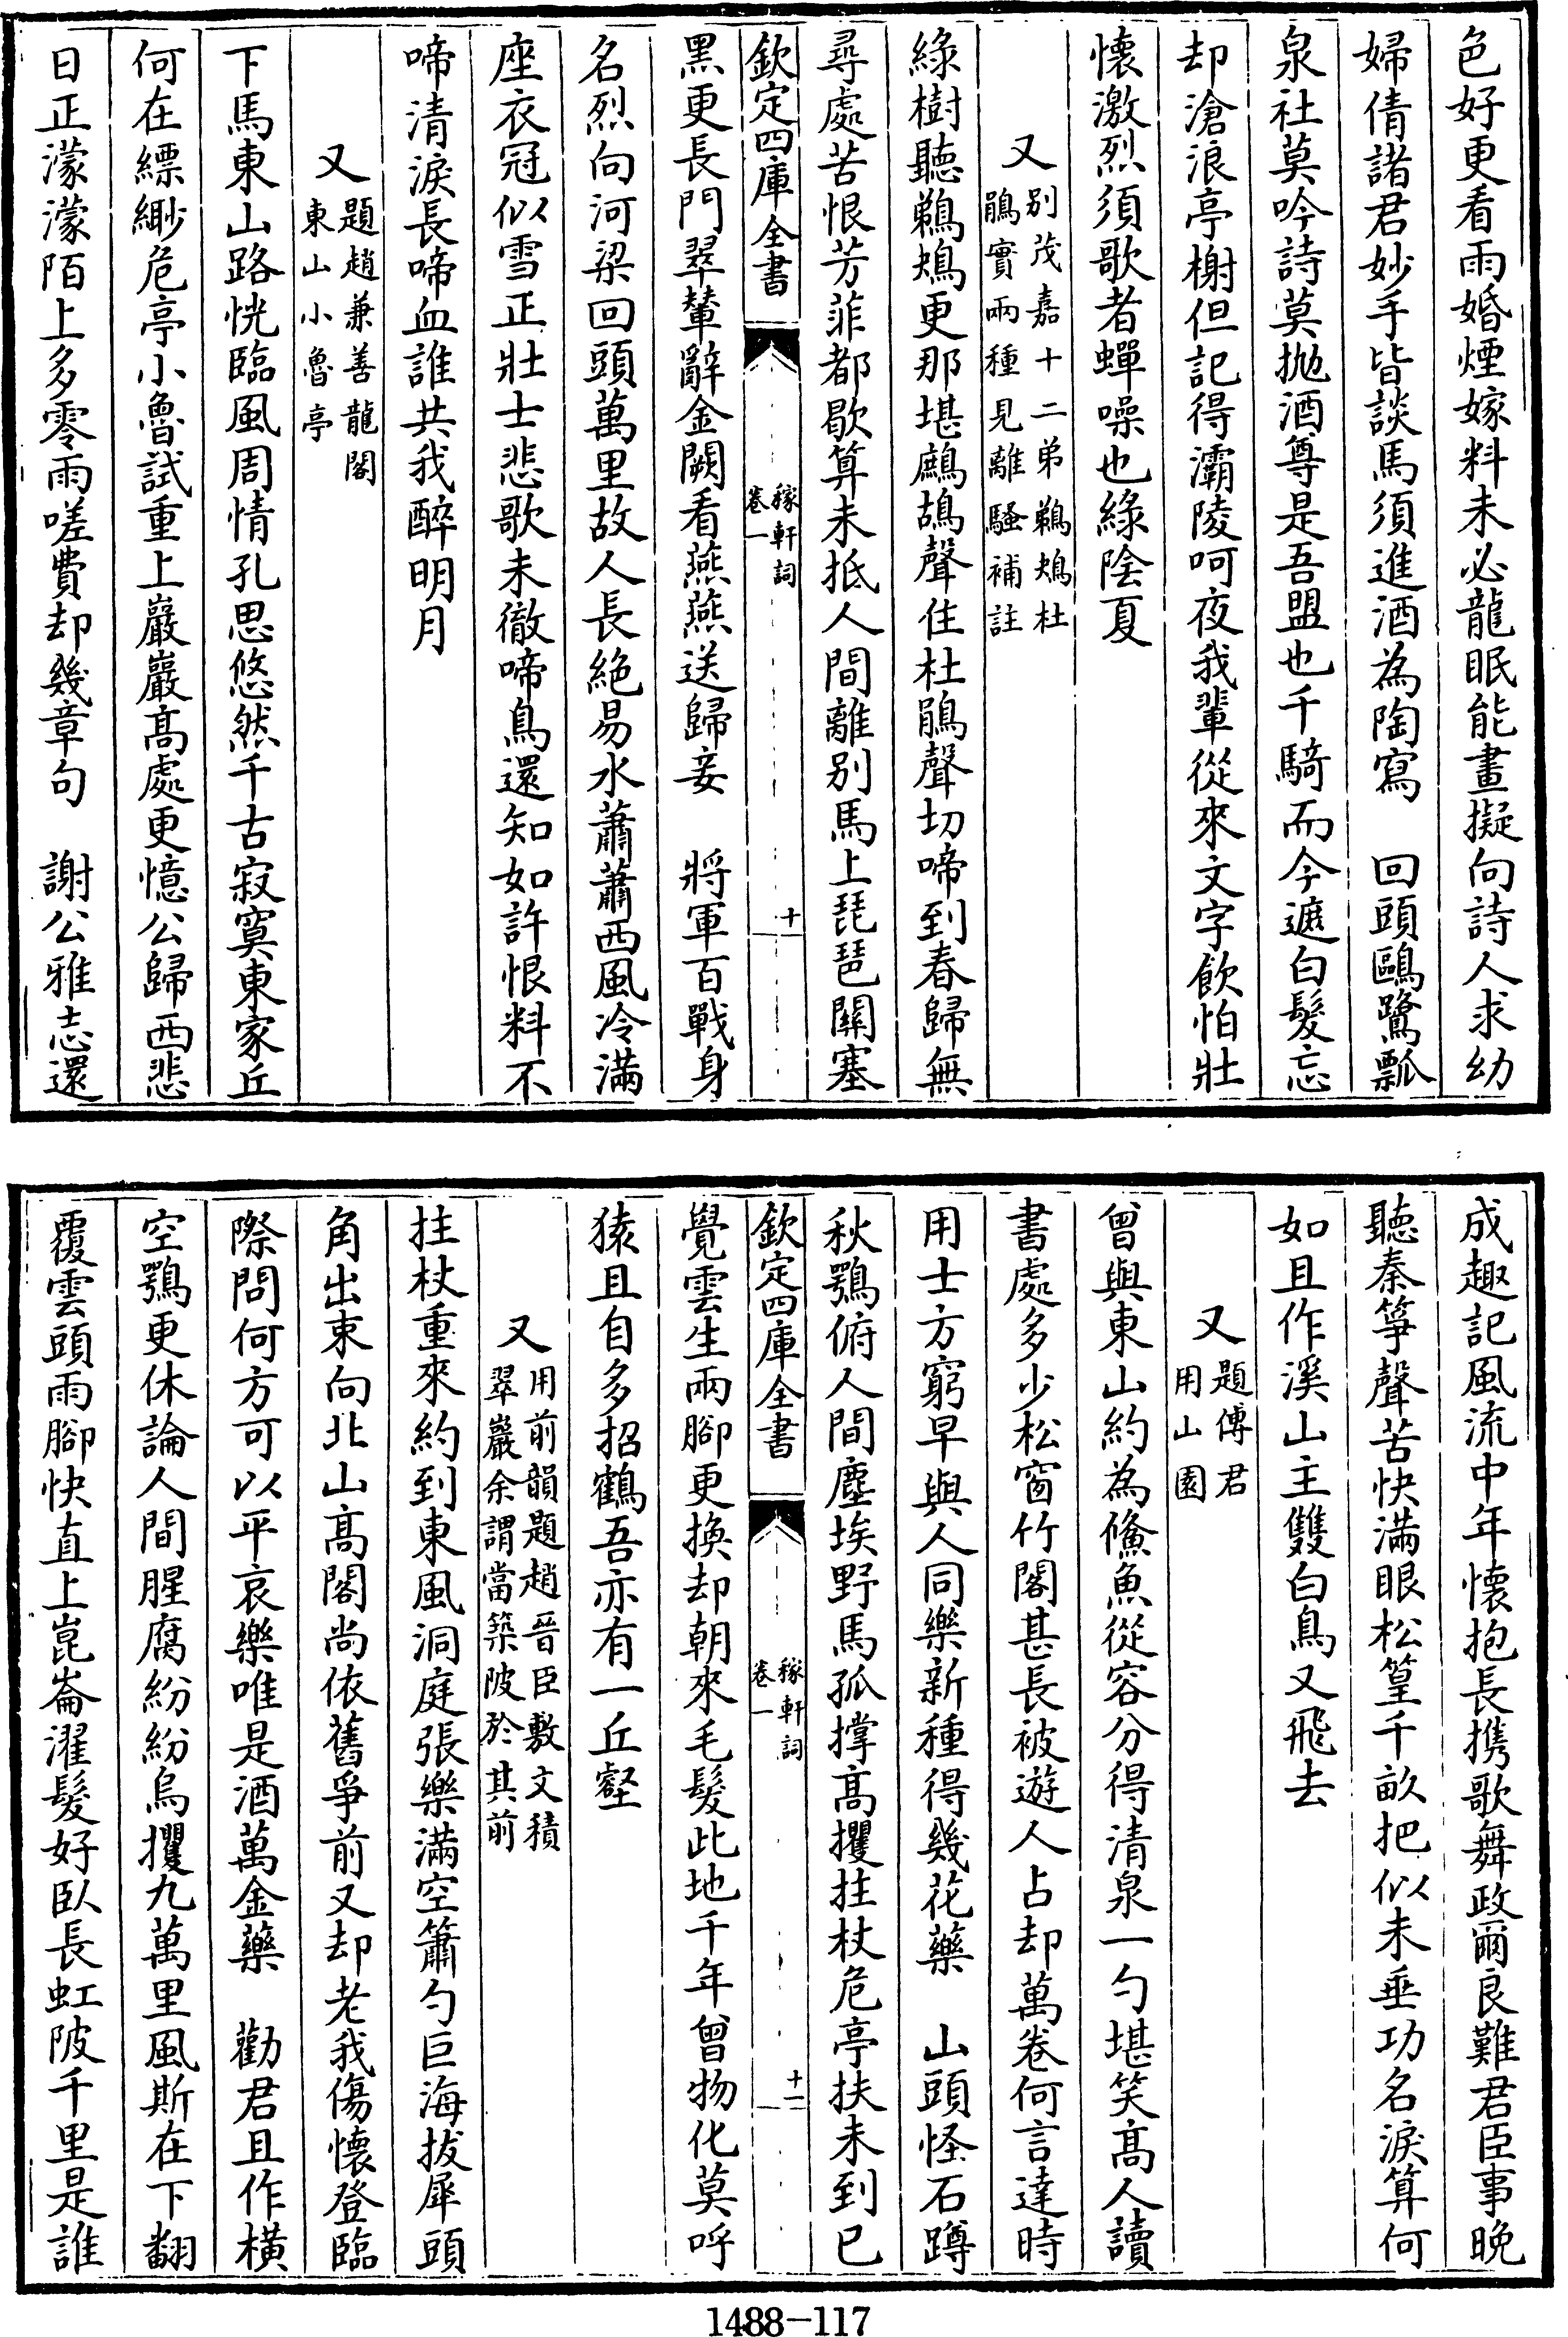 色好更看雨婚煙嫁料未必龍眠能畫擬向詩人求幼
婦倩諸君妙手皆談馬須進酒為陶寫　回頭鷗鷺瓢
泉社莫吟詩莫抛酒尊是吾盟也千騎而今遮白髮忘
却滄浪亭榭但記得灞陵呵夜我輩從來文字飲怕壯
懷激烈須歌者蟬噪也綠陰夏
又别茂嘉十二弟鵜鴂杜
鵑實兩種見離騷補註
綠樹聽鵜鴂更那堪鷓鴣聲住杜鵑聲切啼到春歸無
尋處苦恨芳菲都歇算未抵人間離别馬上琵琶關塞
欽定四庫全書
稼軒詞
卷一
十
黑更長門翠輦辭金闕看燕燕送歸妾　將軍百戰身
名烈向河梁回頭萬里故人長絶易水蕭蕭西風冷滿
座衣冠似雪正壯士悲歌未徹啼鳥還知如許恨料不
啼清淚長啼血誰共我醉明月
又題趙兼善龍閣
東山小魯亭
下馬東山路恍臨風周情孔思悠然千古寂寞東家丘
何在縹緲危亭小魯試重上巖巖髙處更憶公歸西悲
日正濛濛陌上多零雨嗟費却幾章句　謝公雅志還
成趣記風流中年懷抱長携歌舞政爾良難君臣事晚
聽秦箏聲苦快滿眼松篁千畝把似未垂功名淚算何
如且作溪山主雙白鳥又飛去
又題傅君
用山園
曾與東山約為儵魚從容分得清泉一勺堪笑髙人讀
書處多少松窗竹閣甚長被遊人占却萬卷何言達時
用士方窮早與人同樂新種得幾花藥　山頭怪石蹲
秋鶚俯人間塵埃野馬孤撑髙攫拄杖危亭扶未到已
欽定四庫全書
稼軒詞
卷一
十一
覺雲生兩腳更換却朝來毛髮此地千年曾物化莫呼
猿且自多招鶴吾亦有一丘壑
又用前韻題趙晉臣敷文積
翠巖余謂當築陂於其前
拄杖重來約到東風洞庭張樂滿空簫勺巨海拔犀頭
角出東向北山髙閣尚依舊爭前又却老我傷懷登臨
際問何方可以平哀樂唯是酒萬金藥　勸君且作橫
空鶚更休論人間腥腐紛紛烏攫九萬里風斯在下翻
覆雲頭雨腳快直上崑崙濯髮好臥長虹陂千里是誰
1488-117